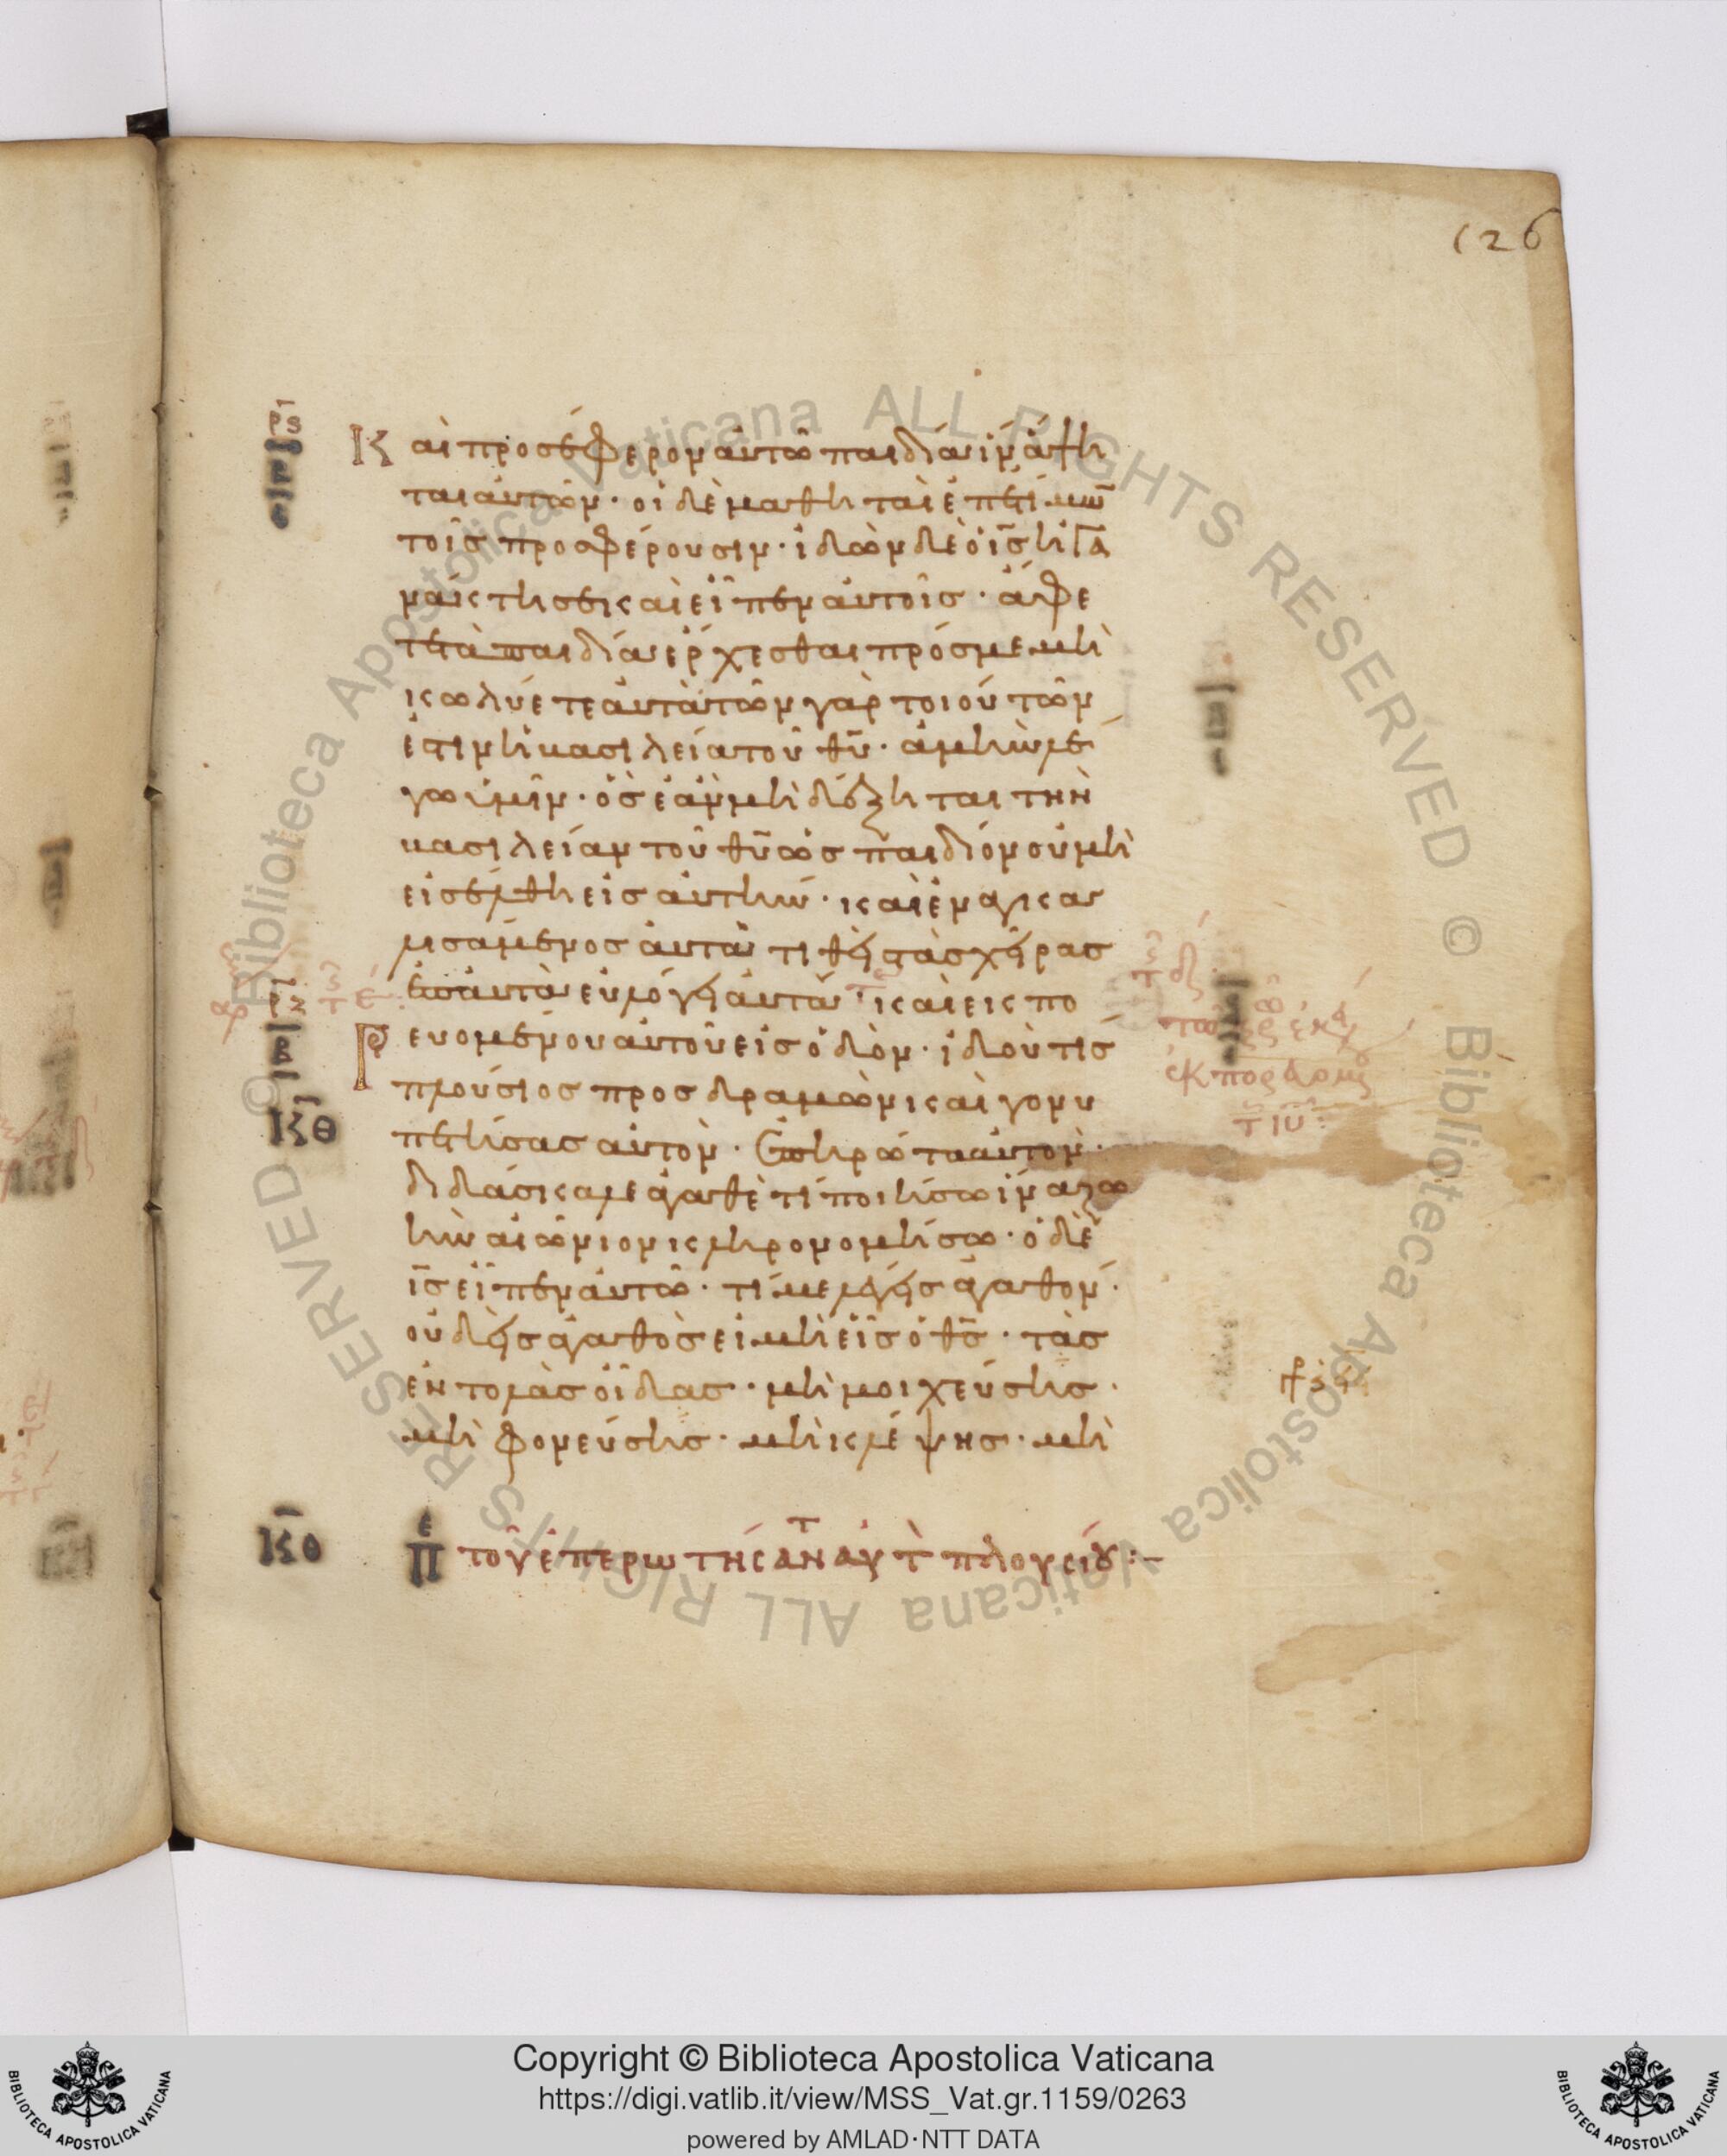 126
ρϛ
Καὶ προσέφερον αὐτῶ παιδία ἵν ἅψη
ται αὐτῶν· οἱ δὲ μαθηταὶ ἐπετίμω̄
τοῖς προσφέρουσιν· ἰδὼν δὲ ὁ ις̄ ἠγα
νάκτησε καὶ εἶπεν αὐτοῖς· ἄφε
τε τὰ παιδία ἔρχεσθαι πρός με μὴ
κωλύετε αὐτὰ τῶν γὰρ τοιούτων
ἐστιν ἡ βασιλεία τοῦ θῡ· ἀμὴν λέ
γω ὑμῖν· ὃς ἐὰν μὴ δέξηται τὴν
βασιλείαν τοῦ θῡ ὡς παιδίον οὐ μὴ
εἰσέλθη εἰς αὐτήν· καὶ ἐναγκα
λισάμενος αὐτὰ τιθεὶς τὰς χεῖρας
ἐπ αὐτὰ εὐλόγει αὐτά· καὶ ἐκπο
ρευομένου αὐτοῦ εἰς ὁδὸν· ἰδού τις
πλούσιος προσδραμὼν καὶ γονυ
πετήσας αὐτὸν· ἐπηρώτα αὐτὸν·
διδάσκαλε ἀγαθὲ τί ποιήσω ἵνα ζω
ὴν αἰώνιον κληρονομήσω· ὁ δὲ
ις̄ εἶπεν αὐτῶ· τί με λέγεις ἀγαθόν·
οὐδεὶς ἀγαθὸς εἰ μὴ εἷς ὁ θς̄· τὰς
ἐντολὰς οἶδας· μὴ μοιχεύσης·
μὴ φονεύσης· μὴ κλέψης· μὴ
ΚΘ
ΚΘ Πε τοῦ ἐπερωτήσαντ αὐτ πλουσίου:–
Copyright © Biblioteca Apostolica Vaticana
https://digi.vatlib.it/view/MSS_Vat.gr.1159/0263
powered by AMLAD·NTT DATA
BIBLIOTECA APOSTOLICA VATICANA
BIBLIOTECA APOSTOLICA VATICANA
© Biblioteca Apostolica Vaticana ALL RIGHTS RESERVED © Biblioteca Apostolica Vaticana ALL RIGHTS RESERVED